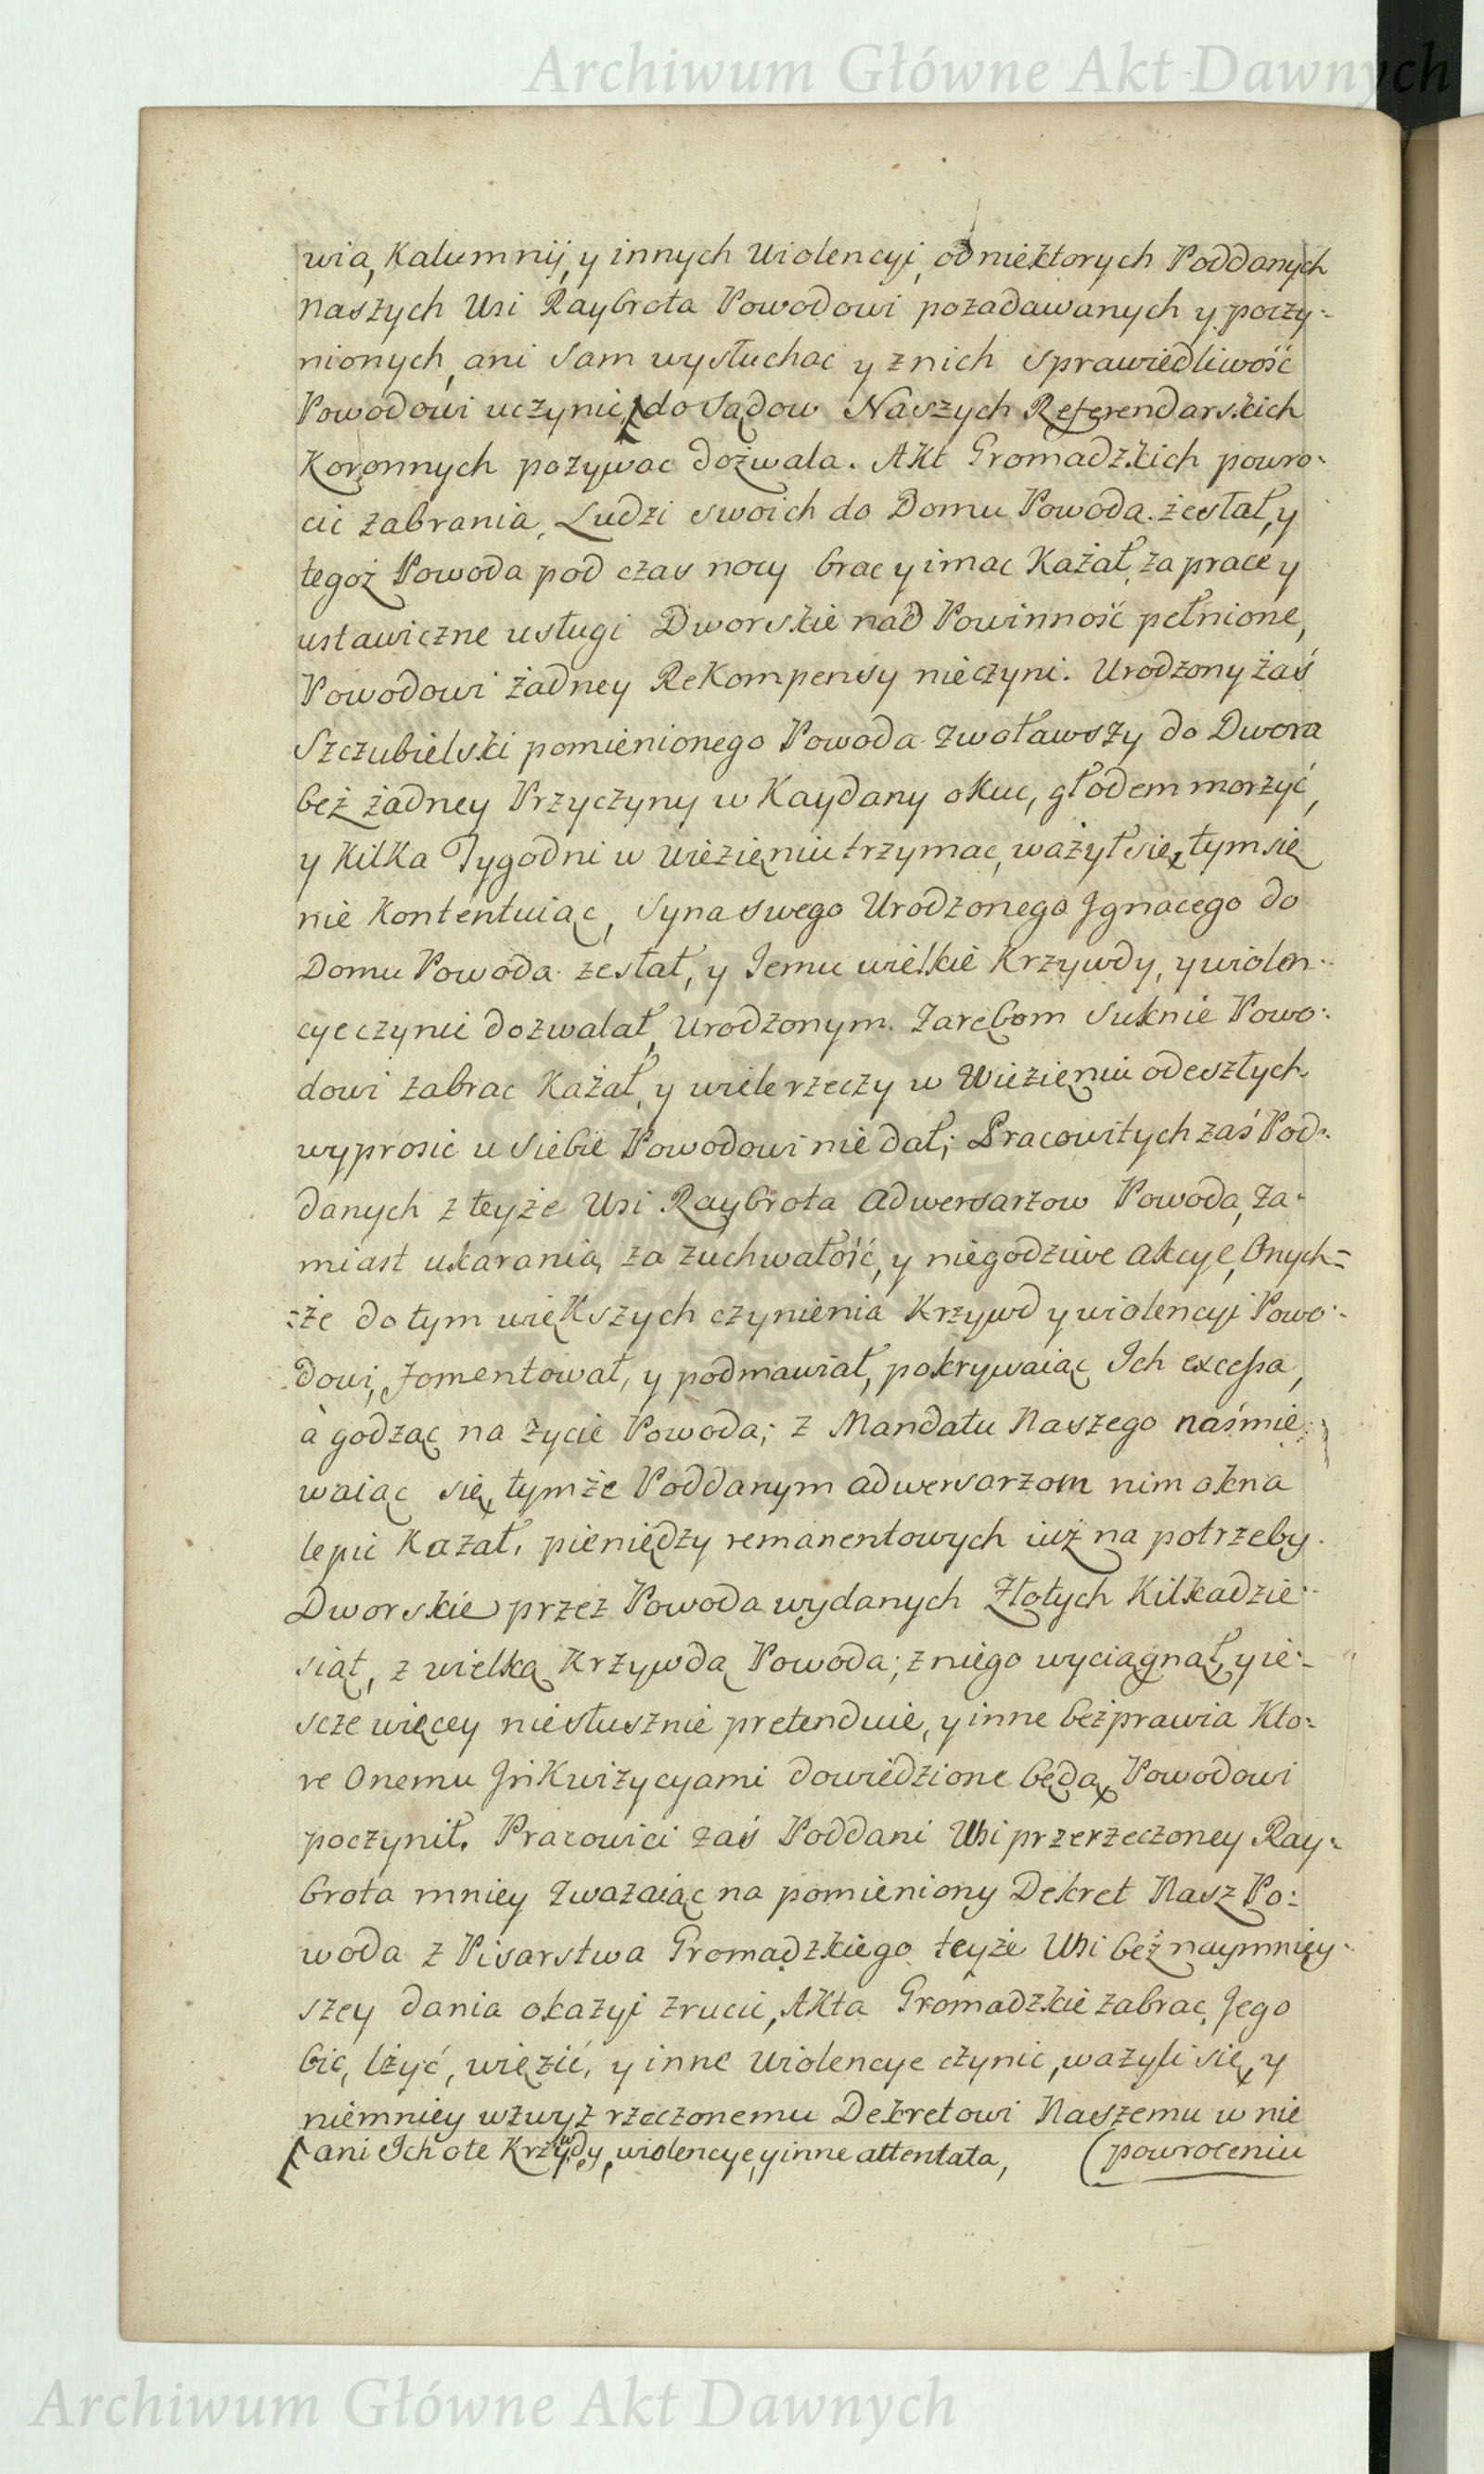 Archiwum Główne Akt Dawnych
wia, Kalumnij, y innych Violencyi, od niektorych Poddanych
naszych Wsi Raybrota Powodowi pozadawanych y poczy:
nionych, ani sam wysłuchac y z nich sprawiedliwość
Powodowi uczynic, [ do Sądow Naszych Referendarskich
Koronnych pozywac dozwala. Akt Gromadzkich powro:
cic zabrania, Ludzi swoich do Domu Powoda zesłał, y
tegoż Powoda pod czas nocy brac y imac Kazał, za prace y
ustawiczne usługi Dworskie nad Powinność pełnione,
Powodowi żadney Rekompensy nieczyni. Urodzony zaś
Szczubielski pomienionego Powoda zwoławszy do Dwora
bez żadney Przyczyny w Kaydany okuc, głodem morzyć,
y Kilka Tygodni w Więzieniu trzymac, ważył się, tym się
nie Kontentuiąc, Syna swego Urodzonego Jgnacego do
Domu Powoda zesłał, y Jemu wielkie Krzywdy, y wiolen:
cye czynic dozwalał, Urodzonym Zarębom Suknie Powo:
dowi zabrac Kazał, y wiele rzeczy w Więzieniu odeszłych
wyprosic u siebie Powodowi nie dał; Pracowitych zaś Pod:
danych z teyże Wsi Raybrota Adwersarzow Powoda, za:
miast ukarania, za zuchwałość, y niegodziwe akcye, Onych=
:że do tym większych czynienia Krzywd y wiolencyi Powo:
dowi, fomentował, y podmawiał, pokrywaiąc Ich excessa,
à godząc na życie Powoda; z Mandatu Naszego naśmie:
waiąc się, tymże Poddanym adwersarzom nim okna
lepic Kazał, pieniędzy remanentowych iuż na potrzeby
Dworskie przez Powoda wydanych Złotych Kilkadzie:
siąt, z wielką Krzywdą Powoda; z niego wyciągnął, y ie:
scze więcey niesłusznie pretenduie, y inne bezprawia Kto:
re Onemu Jnkwizycyami dowiedzione będą, Powodowi
poczynił. Pracowici zaś Poddani Wsi przerzeczoney Ray:
brota mniey zwazaiąc na pomieniony Dekret Nasz Po:
woda z Pisarstwa Gromadzkiego teyże Wsi bez naymniey:
szey dania okazyi zrucic, Akta Gromadzkie zabrac, Jego
bic, lżyć, więzić, y inne Violencye czynic, ważyli się, y
niemniey wzwyż rzeczonemu Dekretowi Naszemu w nie
[ ani Ich o te Krzywdy, wiolencye, y inne attentata, (powroceniu
Archiwum Główne Akt Dawnych